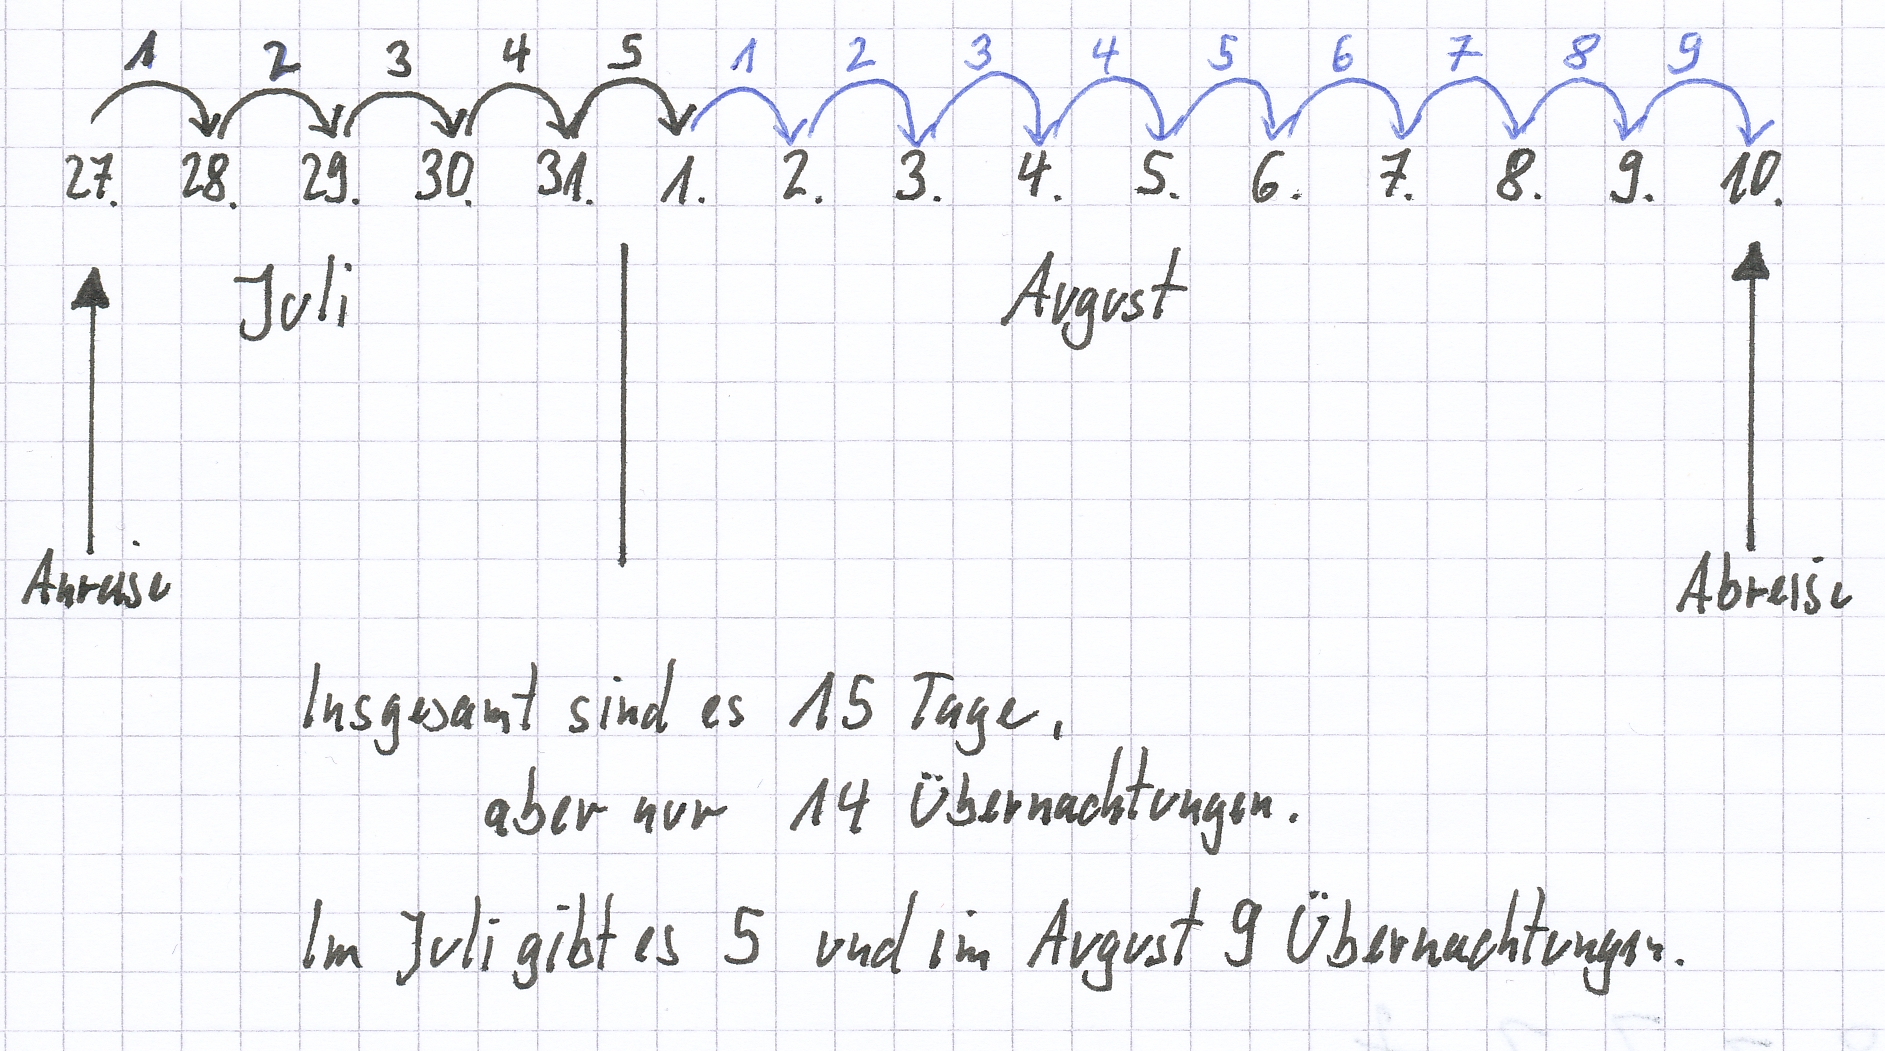 1 2 3 4 5 1 2 3 4 5 6 7 8 9
27. 28. 29. 30. 31. 1. 2. 3. 4. 5. 6. 7. 8. 9. 10.
Juli August
Anreise Abreise
Insgesamt sind es 15 Tage,
aber nur 14 Übernachtungen.
Im Juli gibt es 5 und im August 9 Übernachtungen.